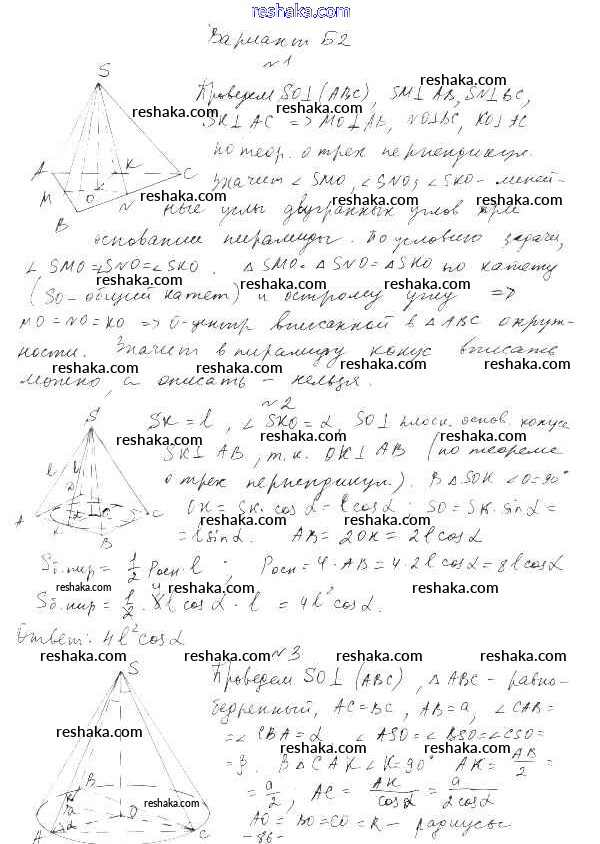 reshaka.com
Вариант Б2
№1
Проведем SO⊥(ABC), SM⊥AB, SN⊥BC,
SK⊥AC => MO⊥AB, NO⊥BC, KO⊥AC
по теор. о трех перпендикул.
Значит ∠SMO, ∠SNO, ∠SKO - линей-
ные углы двугранных углов при
основании пирамиды. По условию задачи,
∠SMO=∠SNO=∠SKO. ΔSMO=ΔSNO=ΔSKO по катету
(SO-общий катет) и острому углу =>
MO=NO=KO => O-центр вписанной в ΔABC окруж-
ности. Значит в пирамиду конус вписать
можно, а описать - нельзя.
№2
SK=l, ∠SKO=α, SO⊥плоск. основ. конуса
SK⊥AB, т.к. OK⊥AB (по теореме
о трех перпендикул.). В ΔSOK ∠O=90°
OK=SK·cosα=lcosα; SO=SK·sinα=
=lsinα. AB=2OK=2lcosα
Sб.пир=1/2 Pосн·l; Pосн=4·AB=4·2lcosα=8lcosα
Sб.пир=1/2·8lcosα·l=4l²cosα.
Ответ: 4l²cosα
№3
Проведем SO⊥(ABC), ΔABC - равно-
бедренный, AC=BC, AB=a, ∠CAB=
=∠CBA=α ∠ASO=∠BSO=∠CSO=
=β. В ΔCAK ∠K=90° AK=AB/2=
=a/2; AC=AK/cosα=a/2cosα
AO=BO=CO=R - радиусы
-86-